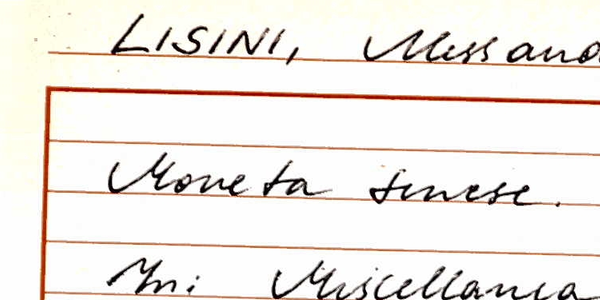 LISINI, Alessand
Moneta senese.
In: Miscellanea